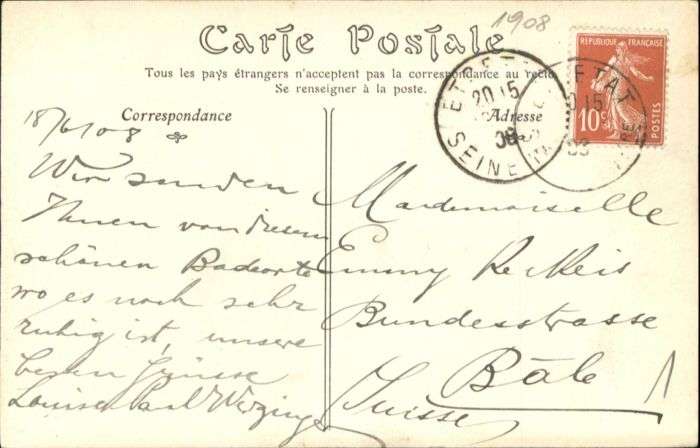 1908
Carte Postale
Tous les pays étrangers n'acceptent pas la correspondance au recto
Se renseigner à la poste.
Correspondance
Adresse
RÉPUBLIQUE FRANÇAISE
10c
POSTES
ETRETAT
20 15
08
SEINE
18/6/08
Wir senden
Ihnen von diesem
schönen Badeorte
wo es noch sehr
ruhig ist, unsere
besten Grüsse
Louise Paul
Mademoiselle
Emmy
Bundesstrasse
Bâle
Suisse